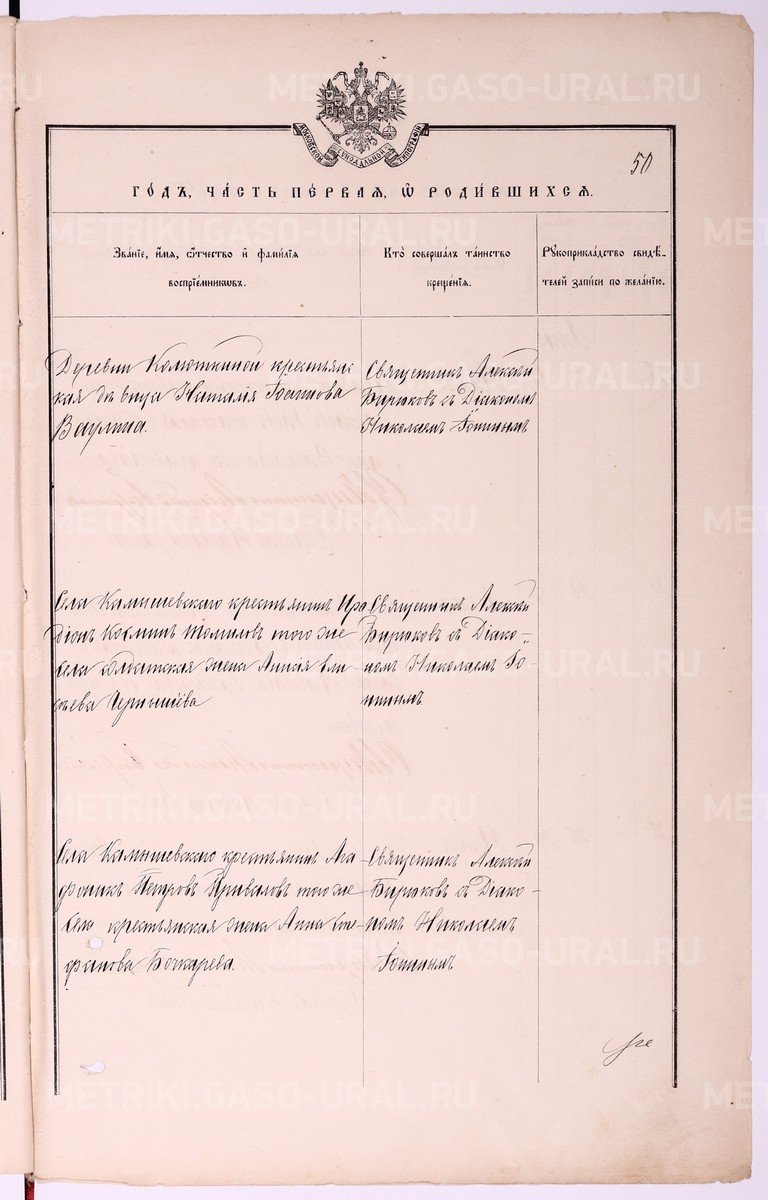 МОСКОВСКОЙ СѴНОДАЛЬНОЙ ТИПОГРАФІИ
50
ГО́ДЪ, ЧА́СТЬ ПЕ́РВАЯ, Ѡ҆ РОДИ́ВШИХСЯ.
Зва́нїе, и҆́мя, ѻ҆́тчество и҆ фами́лїя
воспрїе́мникѡвъ.
Кто̀ соверша́лъ та́инство
креще́нїя.
Рꙋкоприкла́дство свидѣ́-
телей за́писи по жела́нїю.
Деревни Колюткиной крестьянс-
кая дѣвица Наталія Іоаннова
Ваулина.
Священникъ Алексій
Бирюковъ съ Діакономъ
Николаемъ
Села Камышевскаго крестьянинъ Иро
діонъ Космин Томиловъ того же
села солдатская жена Анисія
Чернышёва
Священникъ Алексій
Бирюковъ съ Діако-
номъ Николаемъ
Села Камышевскаго крестьянинъ Ага
фоникъ Петровъ Приваловъ того же
села крестьянская жена Анна Сте-
фанова Бочкарева.
Священникъ Алексій
Бирюковъ съ Діако-
номъ Николаемъ
METRIKI.GASO-URAL.RU